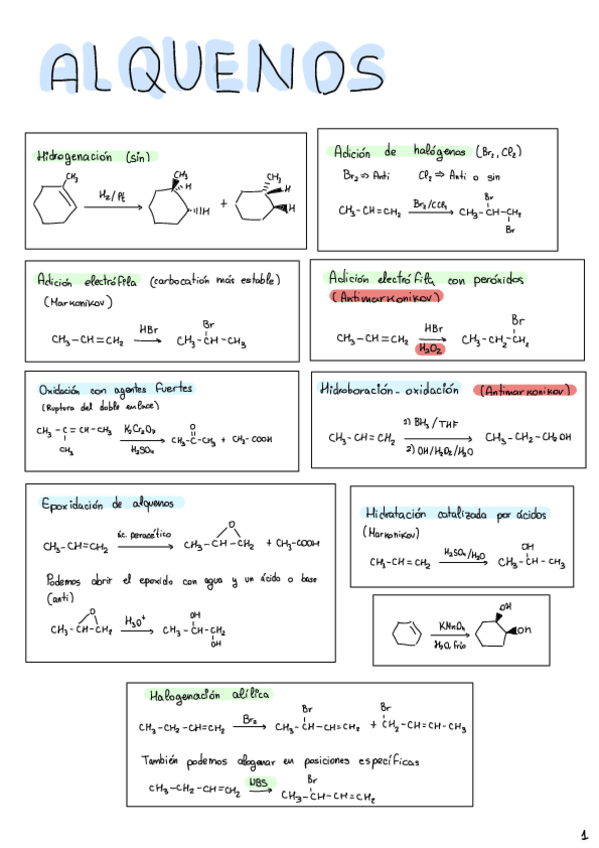 ALQUENOS
Hidrogenación (sin)
CH₃
H₂/Pt
CH₃
H
H
+
CH₃
H
H
Adición de halógenos (Br₂, Cl₂)
Br₂ ⇒ Anti Cl₂ ⇒ Anti o sin
CH₃-CH=CH₂ Br₂/CCl₄ → CH₃-CH-CH₂
Br
Br
Adición electrófila (carbocatión más estable)
(Markonikov)
CH₃-CH=CH₂ HBr → CH₃-CH-CH₃
Br
Adición electrófila con peróxidos
(Antimarkonikov)
CH₃-CH=CH₂ HBr → CH₃-CH₂-CH₂
H₂O₂
Br
Oxidación con agentes fuertes
(Ruptura del doble enlace)
CH₃-C=CH-CH₃ K₂Cr₂O₇ → CH₃-C-CH₃ + CH₃-COOH
CH₃
H₂SO₄
O
Hidroboración-oxidación (Antimarkonikov)
1) BH₃/THF
CH₃-CH=CH₂ → CH₃-CH₂-CH₂OH
2) OH/H₂O₂/H₂O
Epoxidación de alquenos
CH₃-CH=CH₂ ác. peracético → CH₃-CH-CH₂ + CH₃-COOH
O
Podemos abrir el epoxido con agua y un ácido o base
(anti)
CH₃-CH-CH₂ H₃O⁺ → CH₃-CH-CH₂
O
OH
OH
Hidratación catalizada por ácidos
(Markonikov)
CH₃-CH=CH₂ H₂SO₄/H₂O → CH₃-CH-CH₃
OH
KMnO₄
H₂O, frío
OH
OH
Halogenación alílica
CH₃-CH₂-CH=CH₂ Br₂ → CH₃-CH-CH=CH₂ + CH₂-CH=CH-CH₃
Br
Br
También podemos alogenar en posiciones específicas
CH₃-CH₂-CH=CH₂ NBS → CH₃-CH-CH=CH₂
Br
1